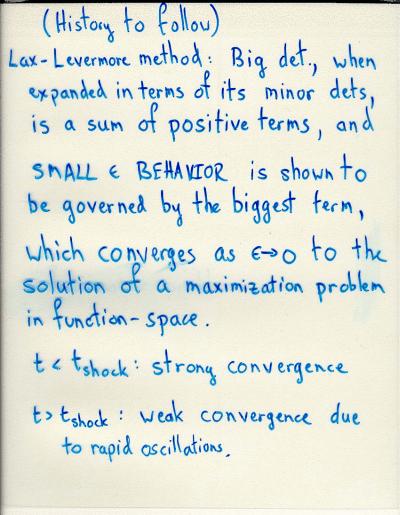 (History to follow)
Lax-Levermore method: Big det., when
expanded in terms of its minor dets,
is a sum of positive terms, and
SMALL ϵ BEHAVIOR is shown to
be governed by the biggest term,
which converges as ϵ→0 to the
solution of a maximization problem
in function-space.
t < t_shock: strong convergence
t > t_shock: weak convergence due
to rapid oscillations.